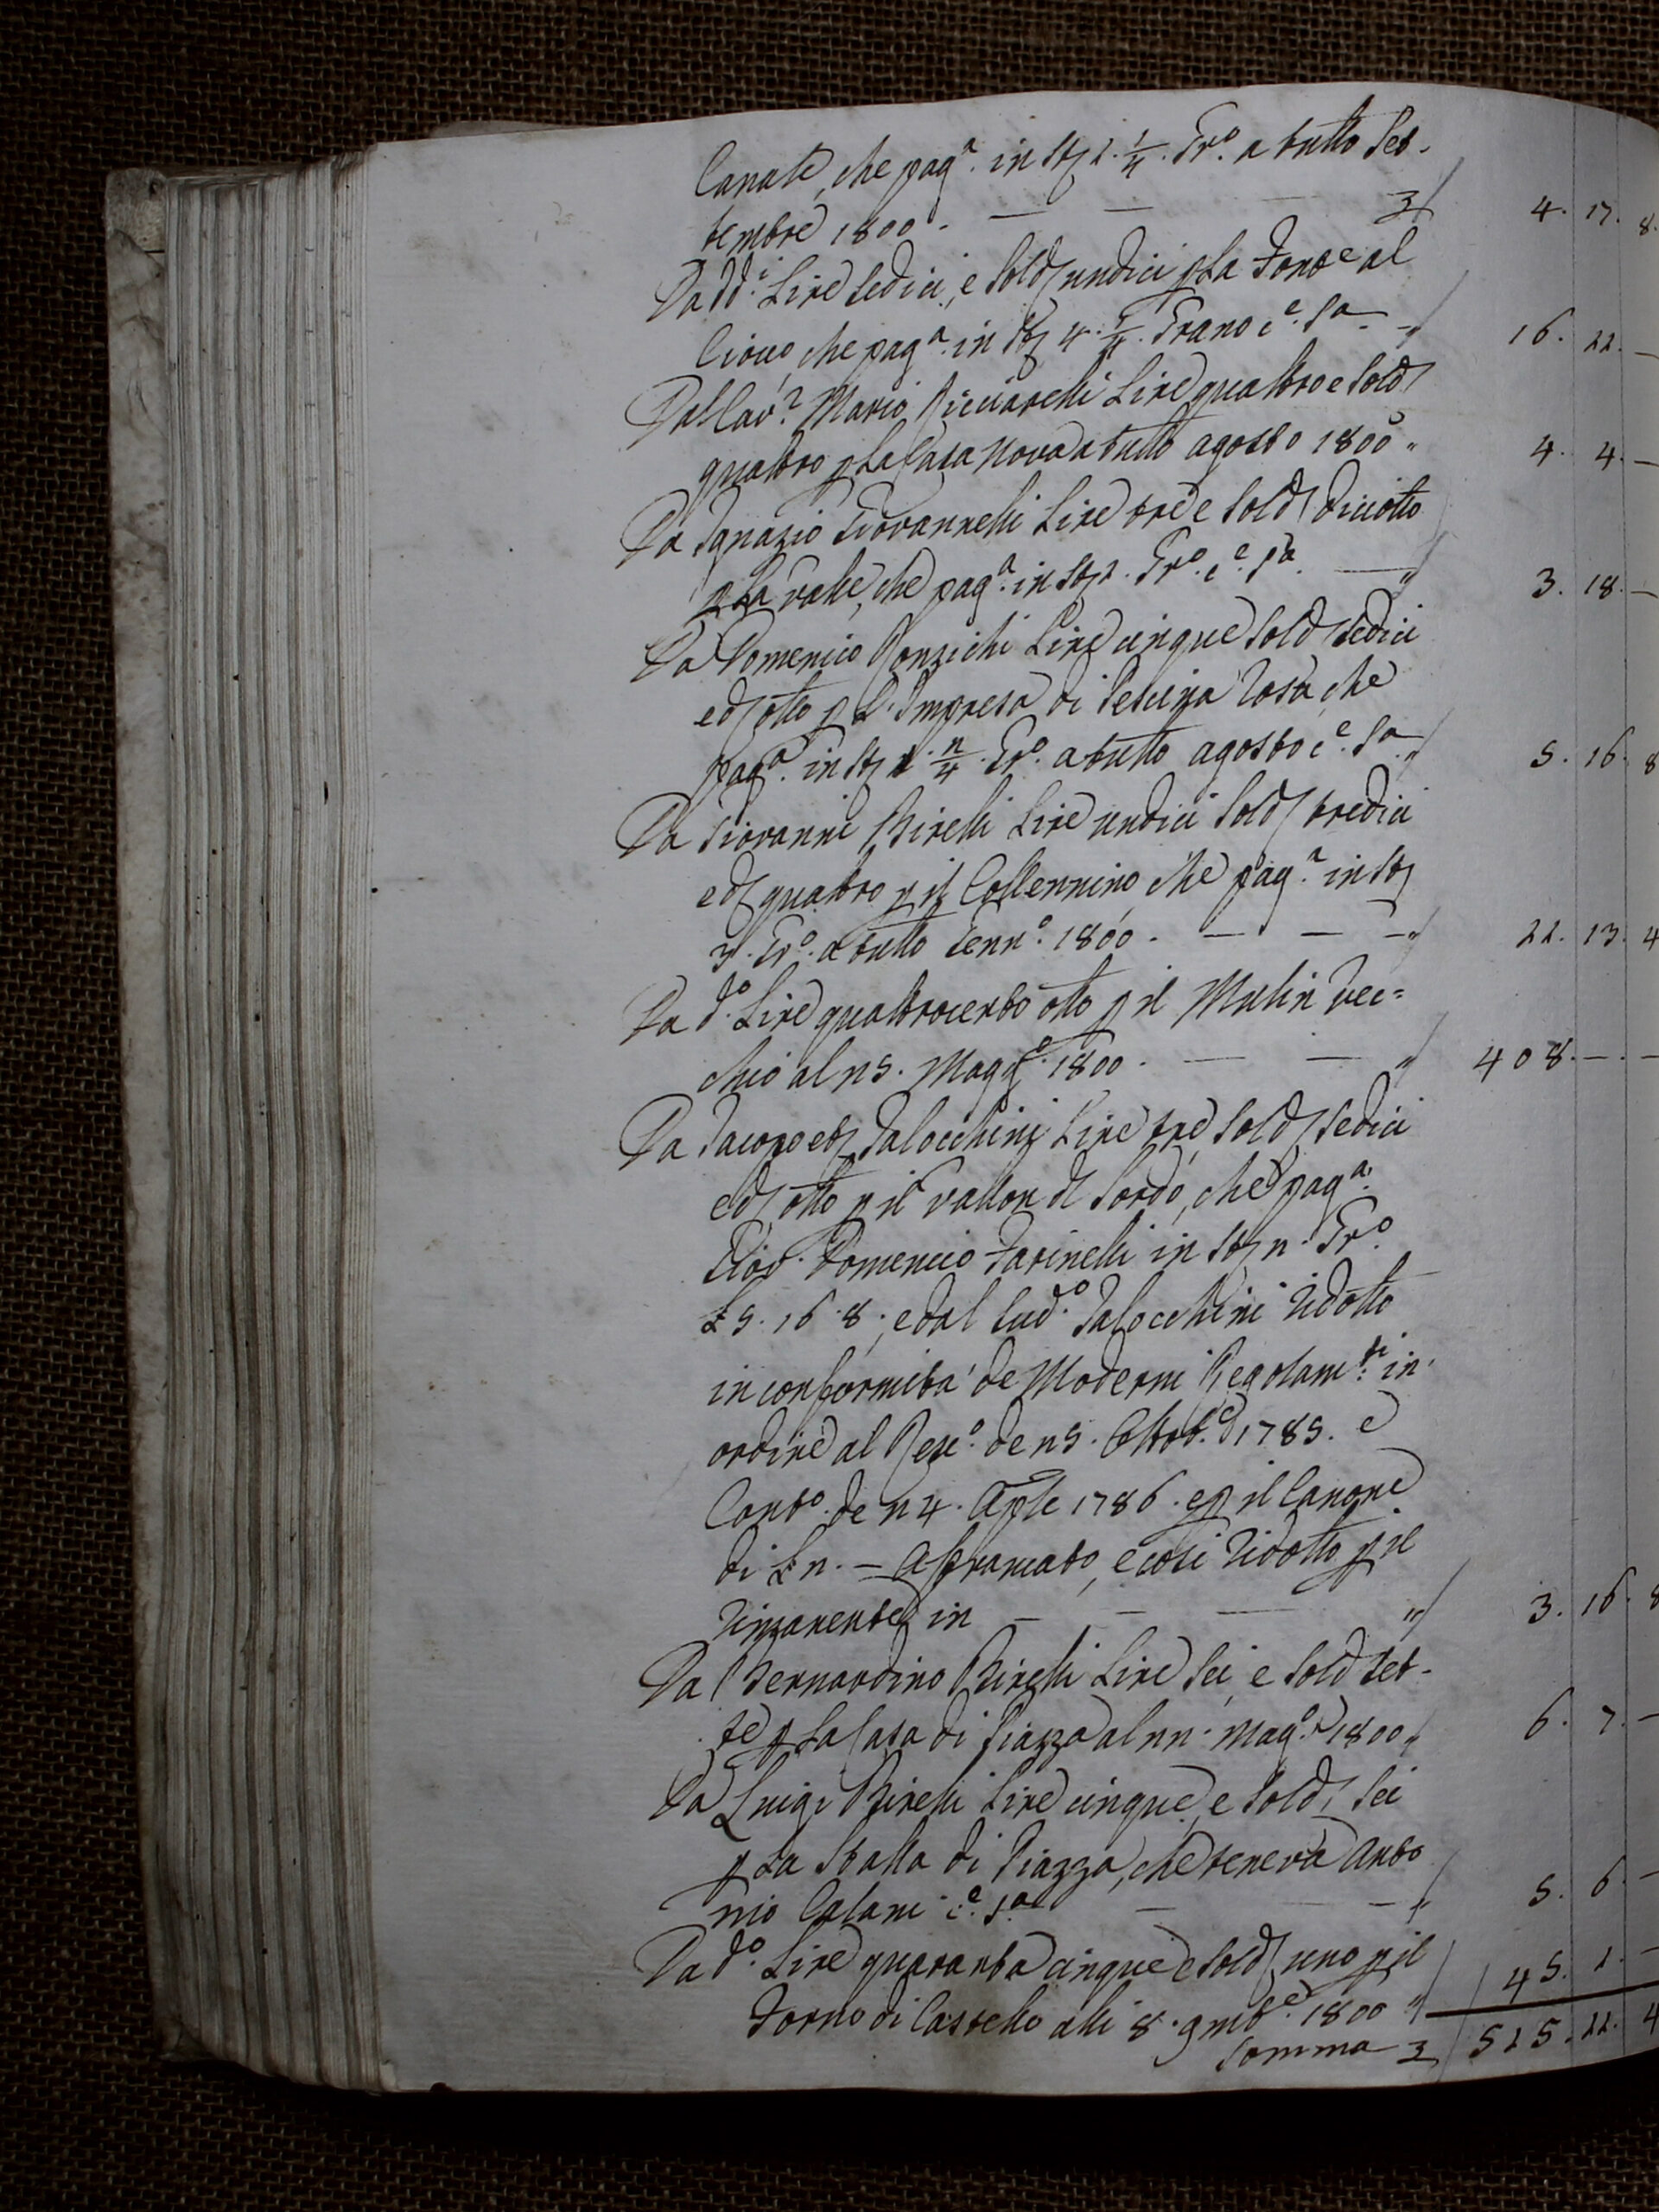 Canate, che pag.ª in St 2. 1/4. Gr.º a tutto Set-
tembre 1800. — — £ 4. 17. 8.
Da dd.i Lire Sedici, e Sold undici p La Fonte al
Ciouo, che pag.ª in St 4. 1/4. Grano c.e S.a " 16. 11. —
Dallav.ª Maria Ricciarelli Lire quattro e Sold
quattro p La Casa nova a tutto agosto 1800 " 4. 4. —
Da Ignazio Giovannelli Lire tre e Sold diciotto
p La Valle, che pag.ª in St 1. Gr.º c.e S.a — " 3. 18. —
Da Domenico Ronzichi Lire cinque Sold Sedici
ed otto p L'Impresa di Tosa, che
pag.ª in St 1/4 Gr.º a tutto agosto c.e S.a " 5. 16. 8
Da Giovanni Birelli Lire undici Sold tredici
ed quattro p il Collennino che pag.ª in St
3. Gr.º a tutto Genn.º 1800. — — — " 11. 13. 4
Da d.º Lire quattrocento otto p il Mulin Vec=
chio al 15. Magg.º 1800. — — " 408. — . —
Da Jacopo Talocchini Lire tre, Sold Sedici
ed otto p il Vallon di Sordo, che pag.ª
Giov. Domenico Farinelli in St 1. Gr.º
£ 5. 16. 8., e dal Sud.º Talocchini ridotto
in conformità de Moderni Regolam.ti in
ordine al Resc.º de 15. Ottob.e 1785. e
Cont.º de 14. Aple 1786. e p il Canone
di £ 2. — Affrancato, e così ridotto p il
rimanente in — — — " 3. 16. 8
Da Bernardino Birelli Lire Sei, e Sold Set-
te p La Casa di Piazza al 11. Mag.º 1800 " 6. 7. —
Da Luigi Birelli Lire cinque, e Sold Sei
p La Stalla di Piazza, che teneva Anto
nio Calani c.e S.a — — " 5. 6. —
Da d.º Lire quaranta cinque e Sold uno p il
Forno di Castello alli 8. 9mb.e 1800 " 45. 1. —
Somma £ 515. 11. 4